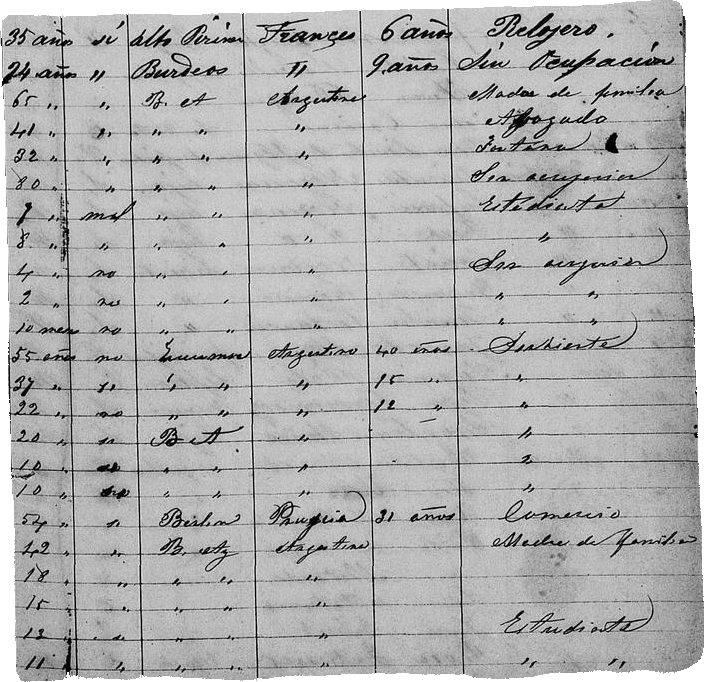 35 años sí alto Pirine Frances 6 años Relojero.
24 años " Burdeos " 9 años Sin Ocupación
65 " " B. A Argentina Madre de familia
41 " " " " " Abogado
32 " " " " "
30 " " " " " Sin ocupacion
7 " mal " " " Estudiante
8 " " " " " "
4 " no " " " Sin ocupacion
2 " no " " " " "
10 mese no " " " " "
55 años no Tucuman Argentino 40 años Sirviente
37 " si " " " 15 " "
22 " no " " " 12 " "
20 " si B A " "
10 " " " " "
10 " no " " " "
54 " si Berlin Prusia 31 años Comercio
42 " " B. A Argentina Madre de familia
18 " " " " "
15 " " " " "
13 " " " " " Estudiante
11 " " " " " " "